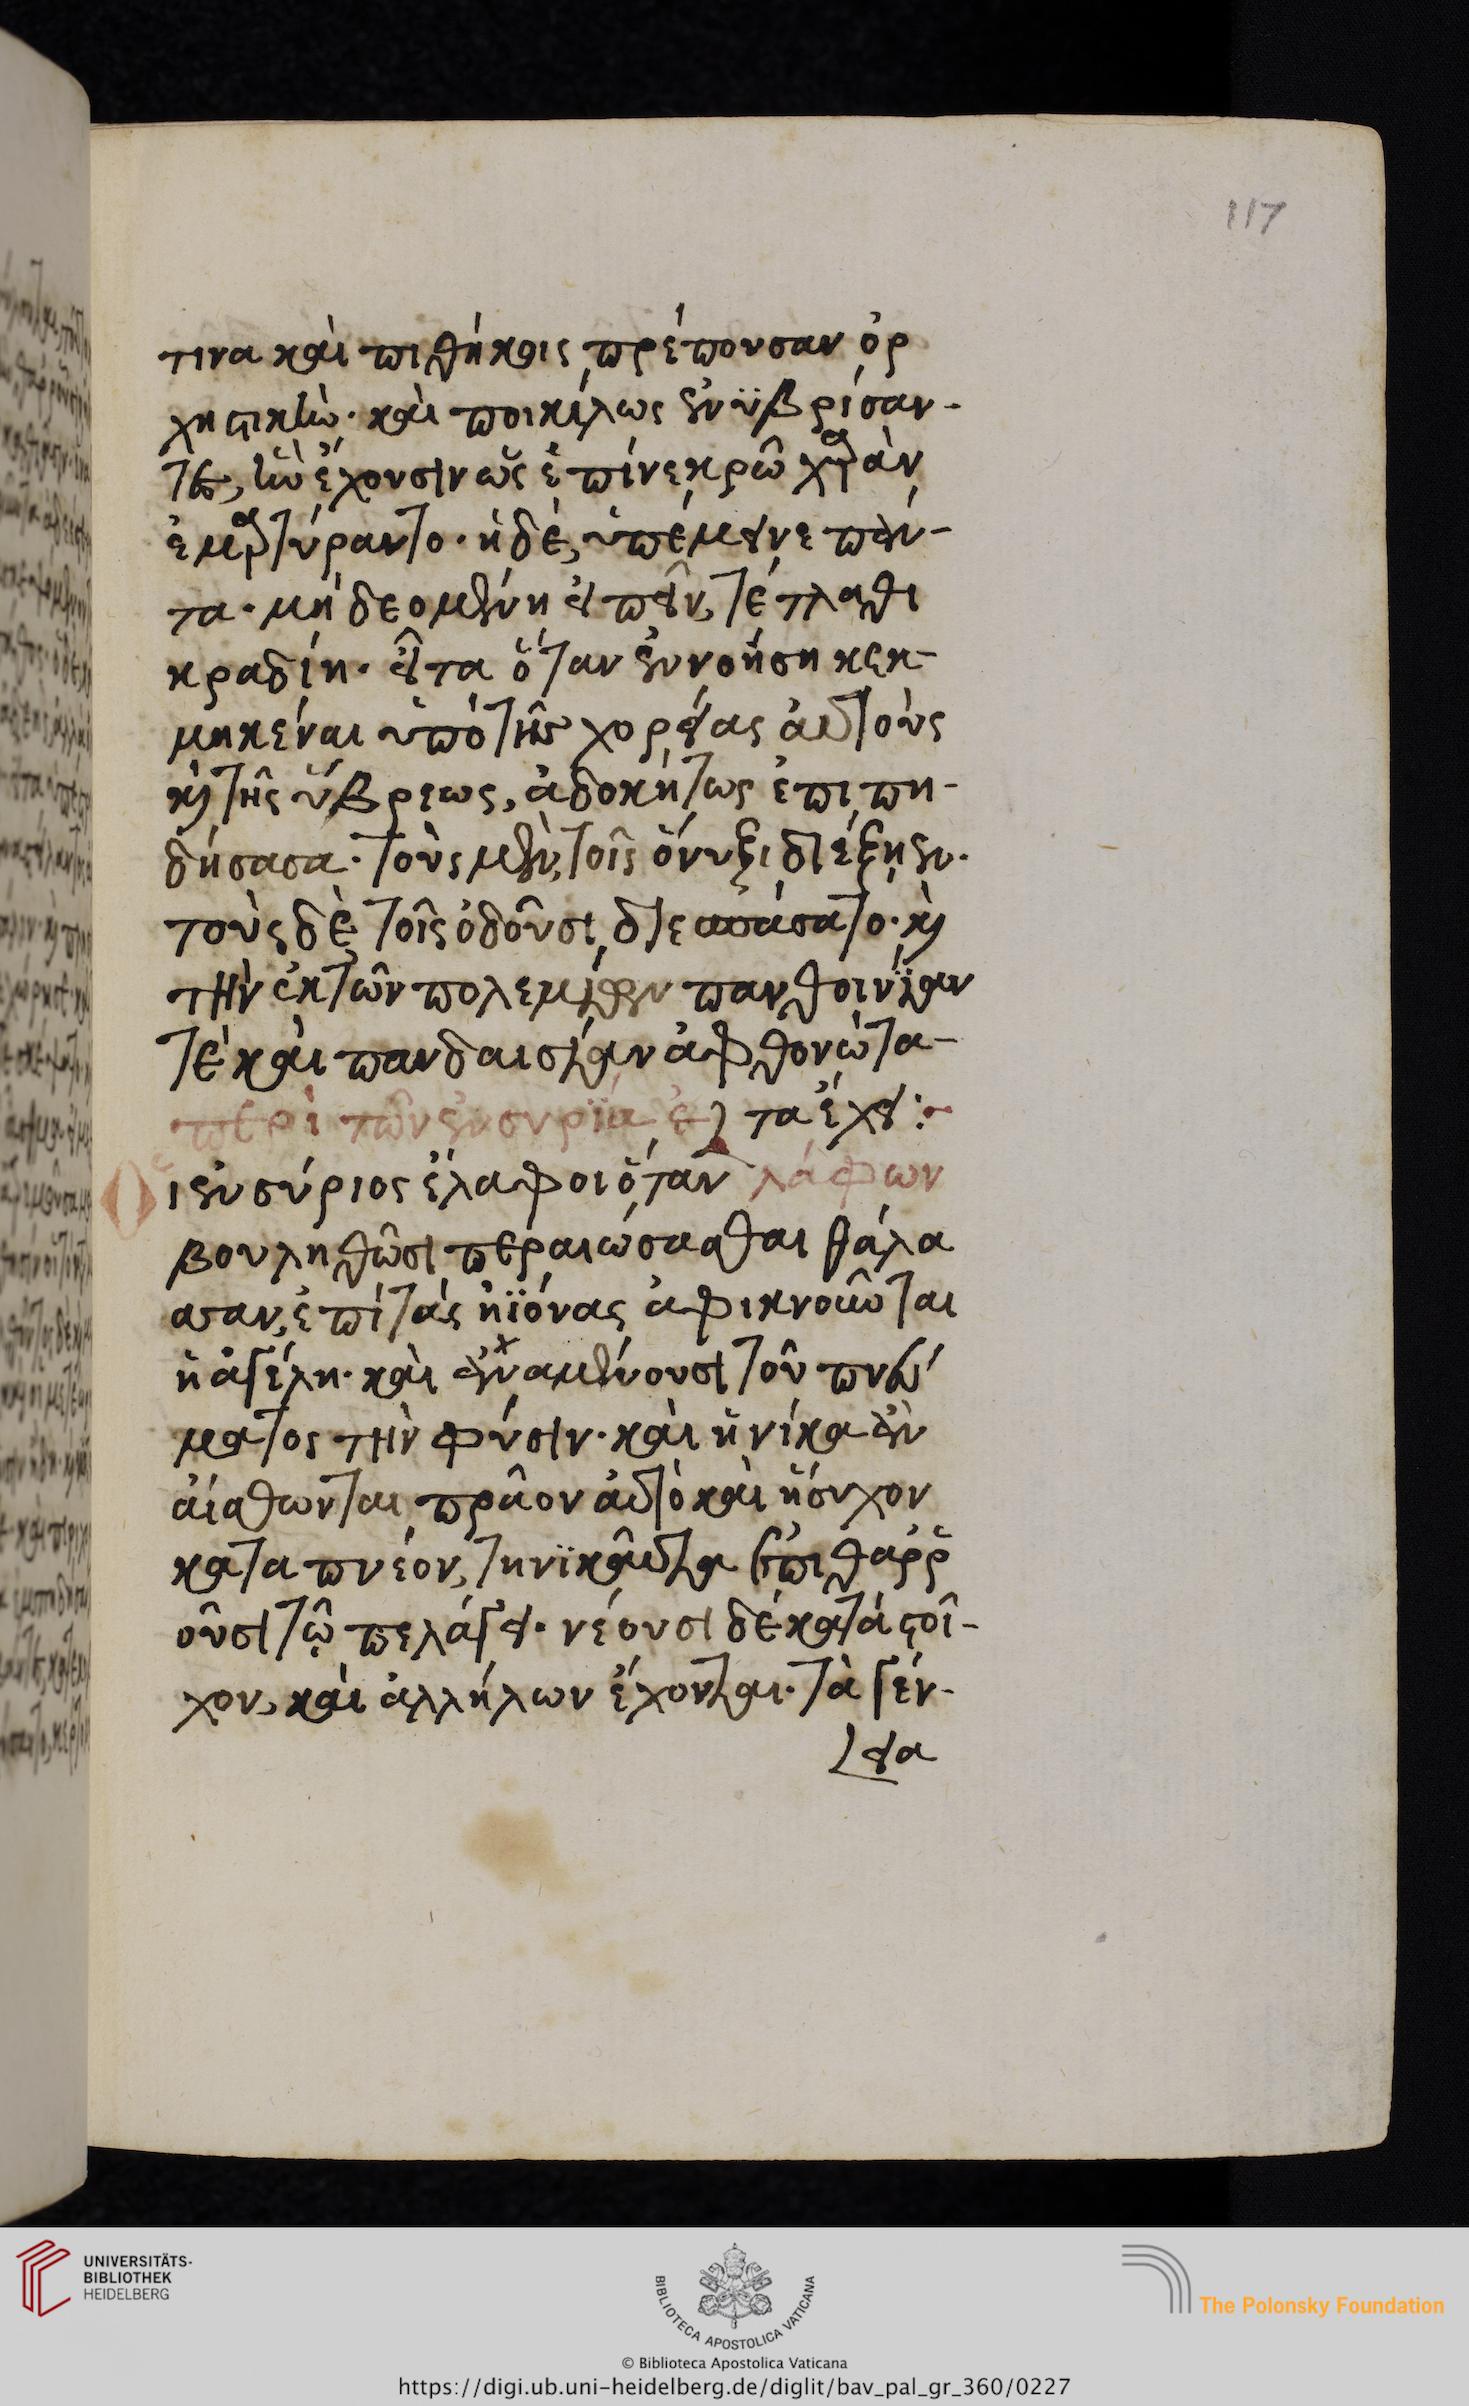 117
τινα καὶ πιθήκοις πρέπουσαν ὀρ
χηστικὴν· καὶ ποικίλως ἐνϋβρίσαν-
τες, ἣν ἔχουσιν ὡς ἐπὶ νεκρῶ χαρὰν
ἐμαρτύραντο· ἡ δὲ, ὑπέμεινε πάν-
τα· μὴ δεομένη εἰπεῖν, τέτλαθι
κραδίη· εἶτα ὅταν ἐννοήση κεκ-
μηκέναι ὑπὸ τῆς χορείας αὐτοὺς
κ(αὶ) τῆς ὕβρεως, ἀδοκήτως ἐπιπη-
δήσασα· τοὺς μὲν, τοῖς ὄνυξι διέξηνεν·
τοὺς δὲ τοῖς ὀδοῦσι διεσπάσατο· κ(αὶ)
τὴν ἐκ τῶν πολεμίων πανθοινίαν
τὲ καὶ πανδαισίαν ἀφθονώτα-
περὶ τῶν ἐν συρία ἐ) τα ἔχει:
Οἱ ἐν σύριος ἔλαφοι ὅταν λάφων
βουληθῶσι περαιώσασθαι θάλα
σσαν, ἐπὶ τὰς ἠϊόνας ἀφικνοῦνται
ἡ ἀγέλη· καὶ ἀναμένουσι τοῦ πνεύ
ματος τὴν φύσιν· καὶ ἡνίκα ἂν
αἴσθωνται πρᾶον αὐτὸ καὶ ἥσυχον
καταπνέον, τηνϊκαῦτα ἐπιθαρρ
οῦσι τῷ πελάγει· νέουσι δὲ κατὰ στοῖ-
χον, καὶ ἀλλήλων ἔχονται· τὰ γέν-
εια
UNIVERSITÄTS-
BIBLIOTHEK
HEIDELBERG
BIBLIOTECA APOSTOLICA VATICANA
The Polonsky Foundation
© Biblioteca Apostolica Vaticana
https://digi.ub.uni-heidelberg.de/diglit/bav_pal_gr_360/0227